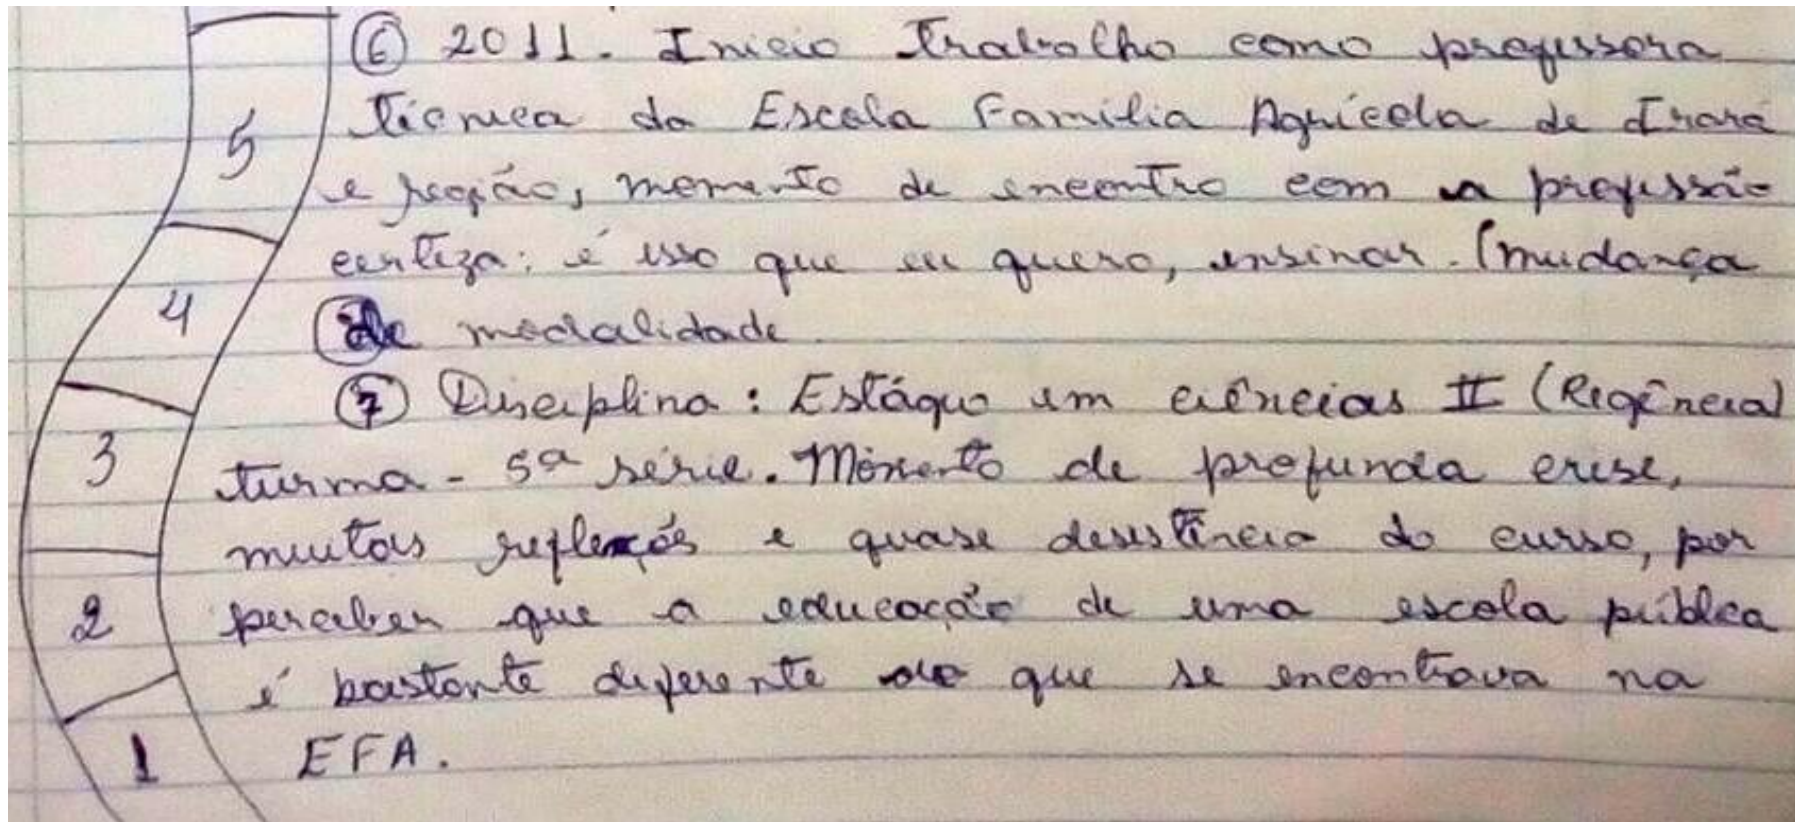 ⑥ 2011. Inicio trabalho como professora
técnica da Escola Família Agrícola de Irará
e região, momento de encontro com a profissão
certeza: é isso que eu quero, ensinar. (mudança
de modalidade.
⑦ Disciplina: Estágio em ciências II (Regência)
turma - 5ª série. Momento de profunda crise,
muitas reflexões e quase desistência do curso, por
perceber que a educação de uma escola pública
é bastante diferente do que se encontrava na
EFA.
5
4
3
2
1